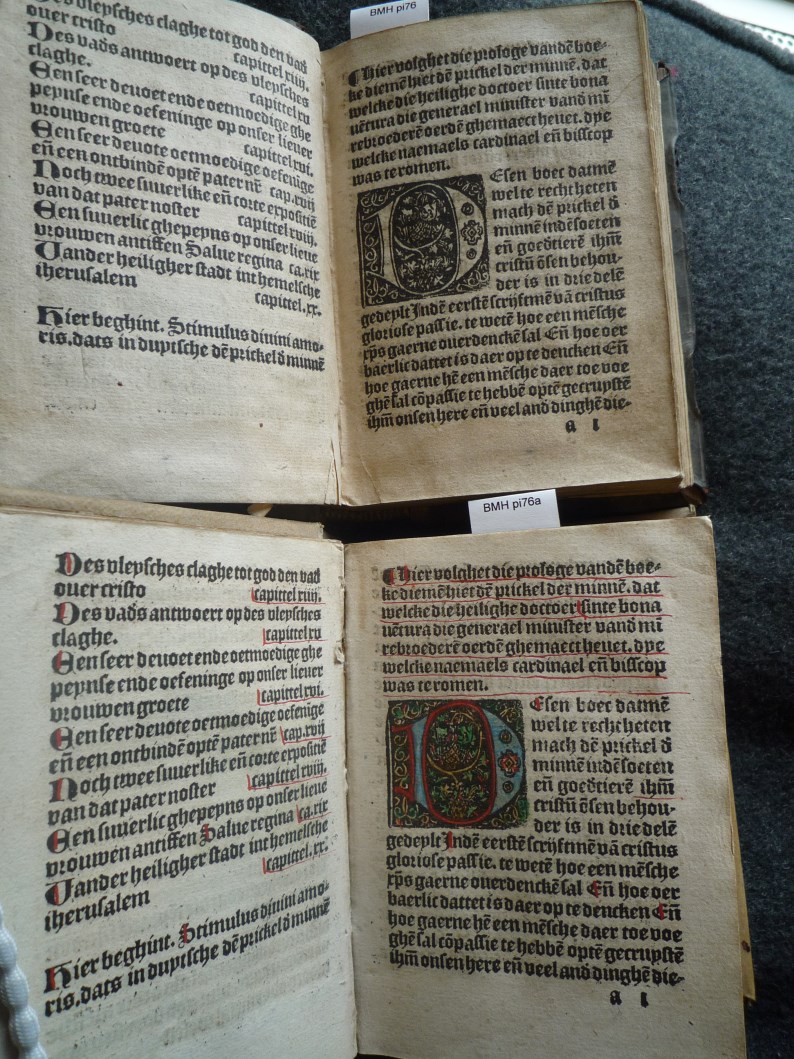 BMH pi76
Des vleysches claghe tot god den vad
ouer cristo capittel xiiij.
Des vads antwoert op des vleysches
claghe. capittel xv
Een seer deuoet ende oetmoedige ghe
peynse ende oefeninge op onser lieuer
vrouwen groete capittel xvi.
Een seer deuote oetmoedige oefenige
en̄ een ontbindē optē pater nr̄ cap.xvij
Noch twee suuerlike en̄ corte expositiē
van dat pater noster capittel xviij.
Een suuerlic ghepeyns op onser lieue
vrouwen antiffen Salue regina ca.xix
Vander heiligher stadt int hemelsche
iherusalem capittel.xx.
Hier beghint. Stimulus diuini amo-
ris. dats in duytsche dē prickel d̄ minnē
¶Hier volghet die prologe vandē boe-
ke diemē hiet dē prickel der minnē. dat
welcke die heilighe doctoer sinte bona
uētura die generael minister vand mī
rebroederē oerdē ghemaect heuet. dye
welcke naemaels cardinael en̄ bisscop
was te romen.
DEsen boec datmē
welte recht heten
mach dē prickel d̄
minnē indē soeten
en̄ goedtierē ihm̄
cristū ōsen behou-
der is in drie delē
gedeylt Indē eerstē scrijftmē vā cristus
gloriose passie. te wetē hoe een mēsche
xp̄s gaerne ouerdenckē sal En̄ hoe oer
baerlic dattet is daer op te dencken En̄
hoe gaerne hē een mēsche daer toe voe
ghē sal cōpassie te hebbē optē gecruystē
ihm̄ onsen here en̄ veel and dinghē die-
a i
BMH pi76a
Des vleysches claghe tot god den vad
ouer cristo capittel xiiij.
Des vads antwoert op des vleysches
claghe. capittel xv
Een seer deuoet ende oetmoedige ghe
peynse ende oefeninge op onser lieuer
vrouwen groete capittel xvi.
Een seer deuote oetmoedige oefenige
en̄ een ontbindē optē pater nr̄ cap.xvij
Noch twee suuerlike en̄ corte expositiē
van dat pater noster capittel xviij.
Een suuerlic ghepeyns op onser lieue
vrouwen antiffen Salue regina ca.xix
Vander heiligher stadt int hemelsche
iherusalem capittel.xx.
Hier beghint. Stimulus diuini amo-
ris. dats in duytsche dē prickel d̄ minnē
¶Hier volghet die prologe vandē boe-
ke diemē hiet dē prickel der minnē. dat
welcke die heilighe doctoer sinte bona
uētura die generael minister vand mī
rebroederē oerdē ghemaect heuet. dye
welcke naemaels cardinael en̄ bisscop
was te romen.
DEsen boec datmē
welte recht heten
mach dē prickel d̄
minnē indē soeten
en̄ goedtierē ihm̄
cristū ōsen behou-
der is in drie delē
gedeylt Indē eerstē scrijftmē vā cristus
gloriose passie. te wetē hoe een mēsche
xp̄s gaerne ouerdenckē sal En̄ hoe oer
baerlic dattet is daer op te dencken En̄
hoe gaerne hē een mēsche daer toe voe
ghē sal cōpassie te hebbē optē gecruystē
ihm̄ onsen here en̄ veel and dinghē die-
a i